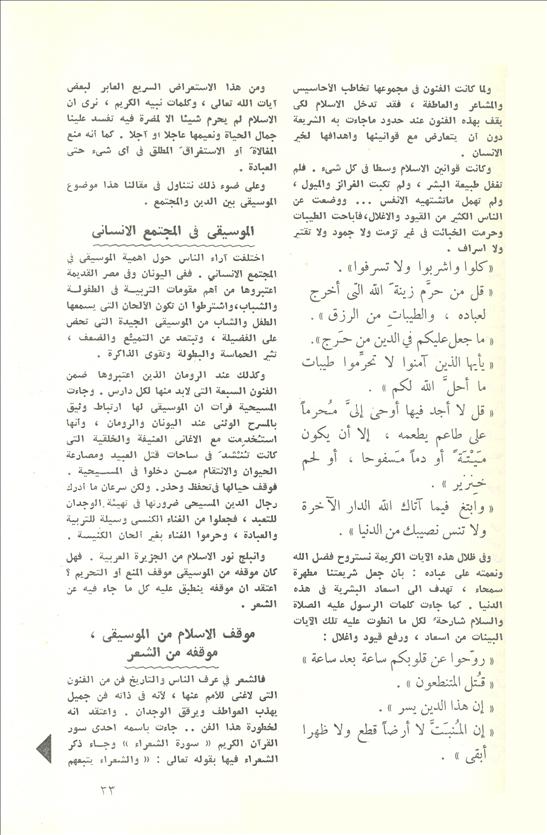 ولما كانت الفنون فى مجموعها تخاطب الأحاسيس
والمشاعر والعاطفة ، فقد تدخل الاسلام لكى
يقف بهذه الفنون عند حدود ماجاءت به الشريعة
دون أن يتعارض مع قوانينها وأهدافها لخير
الانسان .
وكانت قوانين الاسلام وسطا فى كل شىء . فلم
تغفل طبيعة البشر ، ولم تكبت الغرائز والميول ،
ولم تهمل ماتشتهيه الانفس ... ووضعت عن
الناس الكثير من القيود والاغلال،فأباحت الطيبات
وحرمت الخبائث فى غير تزمت ولا جمود ولا تقتير
ولا اسراف .
« كلوا واشربوا ولا تسرفوا» .
« قل من حرَّم زينةَ الله الّتى أخرج
لعباده ، والطيباتِ من الرزق » .
« ما جعل عليكم فى الدين من حَرج» .
« يأيها الذين آمنوا لا تحرِّموا طيبات
ما أحلَّ الله لكم » .
« قل لا أجد فيها أوحىَ إلىَّ مُحرماً
على طاعم يطعمه ، إلا أن يكون
مَيْتَةً أو دماً مَسفوحا ، أو لحم
خِنزير » .
« وابتغ فيما آتاك الله الدار الآخرة
ولا تنس نصيبك من الدنيا » .
وفى ظلال هذه الآيات الكريمة نستروح فضل الله
ونعمته على عباده : بأن جعل شريعتنا مطهرة
سمحاء ، تهدف الى اسعاد البشرية فى هذه
الدنيا . كما جاءت كلمات الرسول عليه الصلاة
والسلام شارحة لكل ما انطوت عليه تلك الآيات
البينات من اسعاد ، ورفع قيود وأغلال :
« روّحوا عن قلوبكم ساعة بعد ساعة »
« قُتل المتنطعون » .
« إن هذا الدين يسر » .
« إن المُنبَتَّ لا أرضاً قطع ولا ظهرا
أبقى » .
ومن هذا الاستعراض السريع العابر لبعض
آيات الله تعالى ، وكلمات نبيه الكريم ، نرى أن
الاسلام لم يحرم شيئا الا لمضرة فيه تفسد علينا
جمال الحياة ونعيمها عاجلا أو آجلا . كما أنه منع
المغالاة أو الاستغراق المطلق فى أى شىء حتى
العبادة .
وعلى ضوء ذلك نتناول فى مقالنا هذا موضوع
الموسيقى بين الدين والمجتمع .
الموسيقى فى المجتمع الانسانى
اختلفت آراء الناس حول أهمية الموسيقى فى
المجتمع الانسانى . ففى اليونان وفى مصر القديمة
اعتبروها من أهم مقومات التربية فى الطفولة
والشباب،واشترطوا أن تكون الألحان التى يسمعها
الطفل والشاب من الموسيقى الجيدة التى تحض
على الفضيلة ، وتبتعد عن التميّع والضعف ،
تثير الحماسة والبطولة وتقوى الذاكرة .
وكذلك عند الرومان الذين اعتبروها ضمن
الفنون السبعة التى لابد منها لكل دارس . وجاءت
المسيحية فرأت أن الموسيقى لها ارتباط وثيق
بالمسرح الوثنى عند اليونان والرومان ، وأنها
استُخدمت مع الاغانى العنيفة والخلقية التى
كانت تُنْشَد فى ساحات قتل العبيد ومصارعة
الحيوان والانتقام ممن دخلوا فى المسيحية .
فوقف حيالها فى تحفظ وحذر. ولكن سرعان ما أدرك
رجال الدين المسيحى ضرورتها فى تهيئة الوجدان
للتعبد ، فجعلوا من الغناء الكنسى وسيلة للتربية
والعبادة ، وحرموا الغناء بغير الحان الكنيسة .
وانبلج نور الاسلام من الجزيرة العربية . فهل
كان موقفه من الموسيقى موقف المنع أو التحريم ؟
أعتقد أن موقفه ينطبق عليه كل ما جاء فيه عن
الشعر .
موقف الاسلام من الموسيقى ،
موقفه من الشعر
فالشعر فى عرف الناس والتاريخ فن من الفنون
التى لاغنى للأمم عنها ، لأنه فى ذاته فن جميل
يهذب العواطف ويرقق الوجدان . وأعتقد أنه
لخطورة هذا الفن .. جاءت باسمه احدى سور
القرآن الكريم « سورة الشعراء » وجاء ذكر
الشعراء فيها بقوله تعالى : « والشعراء يتبعهم
٢٣